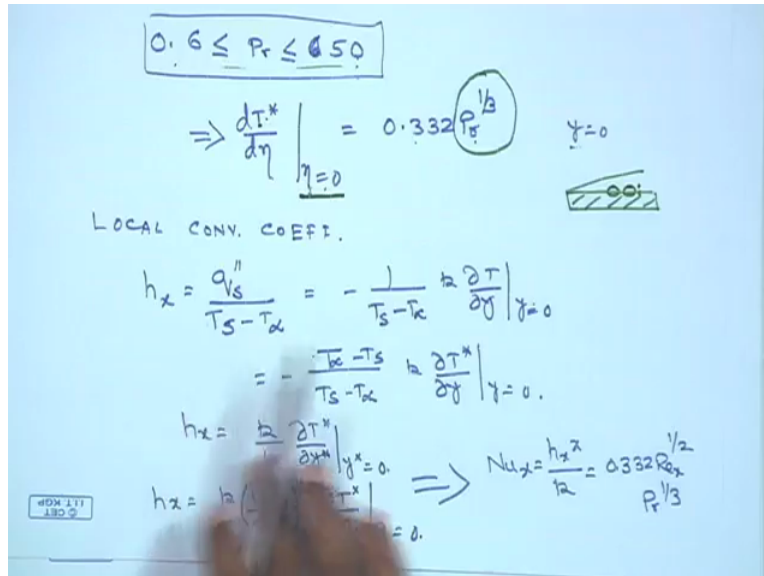 0.6 ≤ Pr ≤ 50
⇒ dT*/dη |η=0 = 0.332 Pr^1/3 y=0
LOCAL CONV. COEFF.
hx = qs''/(Ts-Tα) = - 1/(Ts-Tα) k ∂T/∂y |y=0
= - (Tα-Ts)/(Ts-Tα) k ∂T*/∂y |y=0.
hx = k ∂T*/∂y* |y*=0.
⇒ Nux = hx x/k = 0.332 Rex^1/2
Pr^1/3
hx = k ( T* = 0.
© CET
I.I.T. KGP